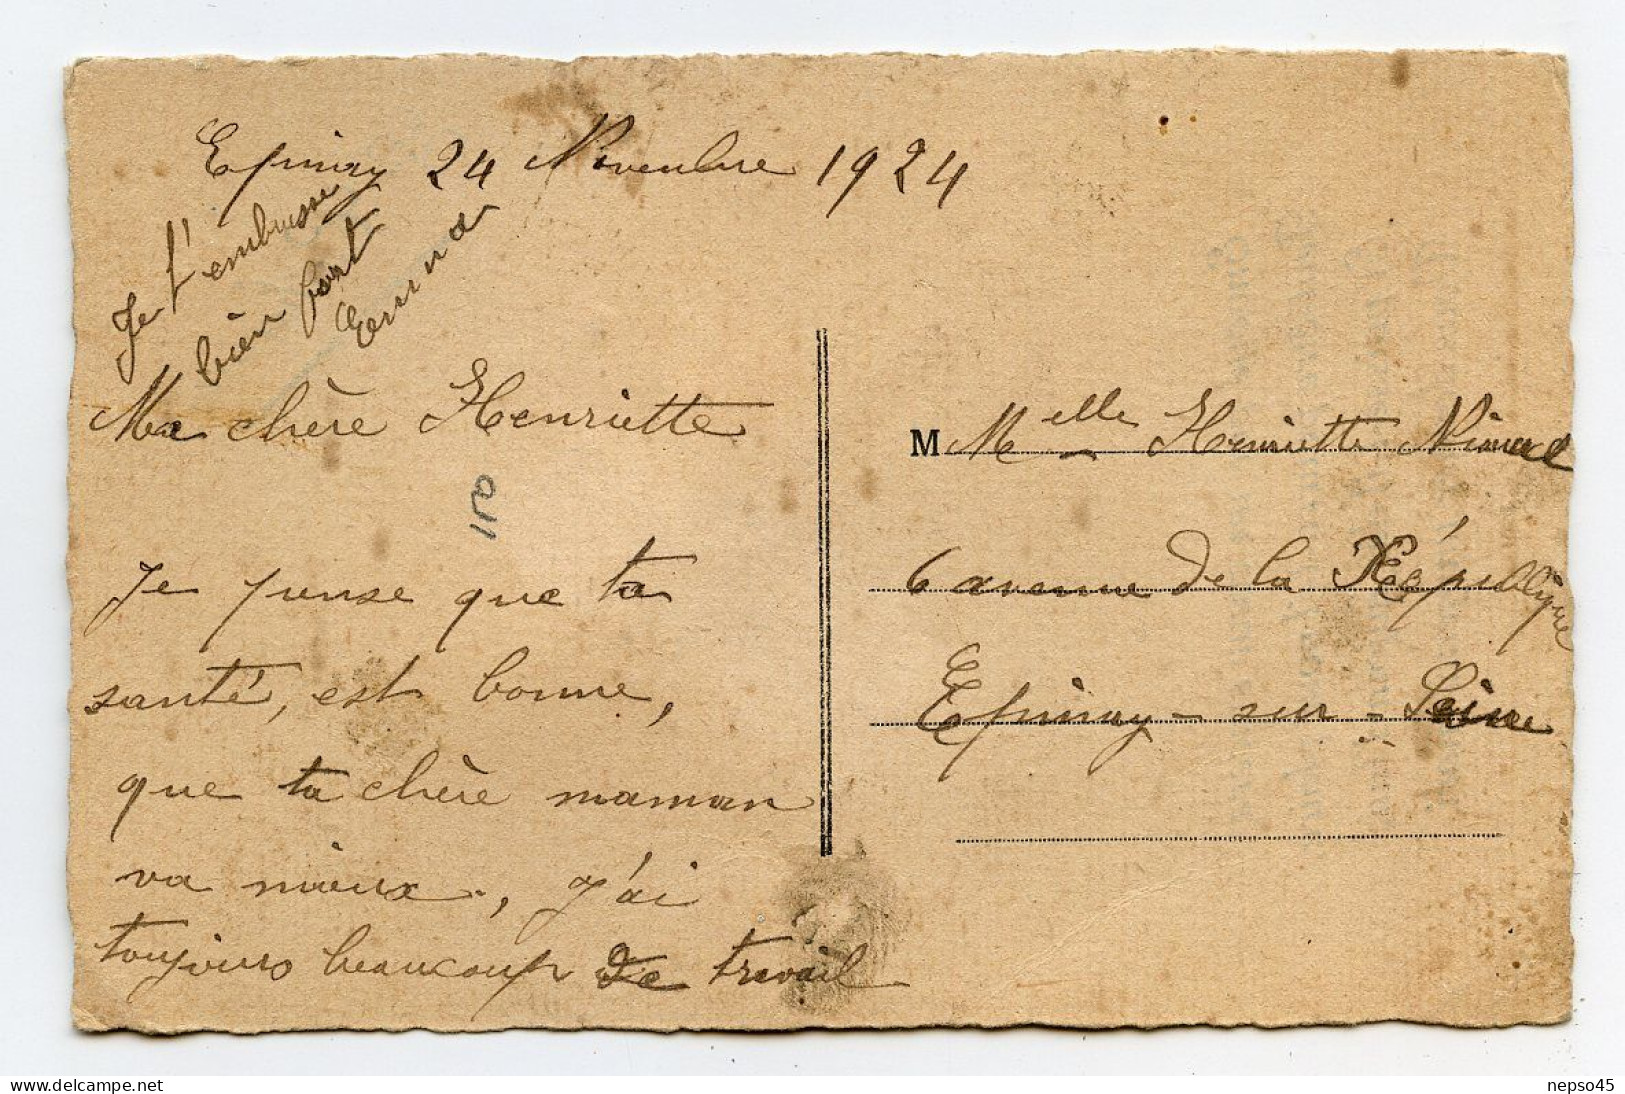 Epinay 24 Novembre 1924
Je t'embrasse
bien fort
Ma chère Henriette
Je pense que ta
santé, est bonne,
que ta chère maman
va mieux, j'ai
toujours beaucoup de travail
M Melle Henriette
6 avenue de la République
Epinay-sur-Seine
delcampe.net
nepso45